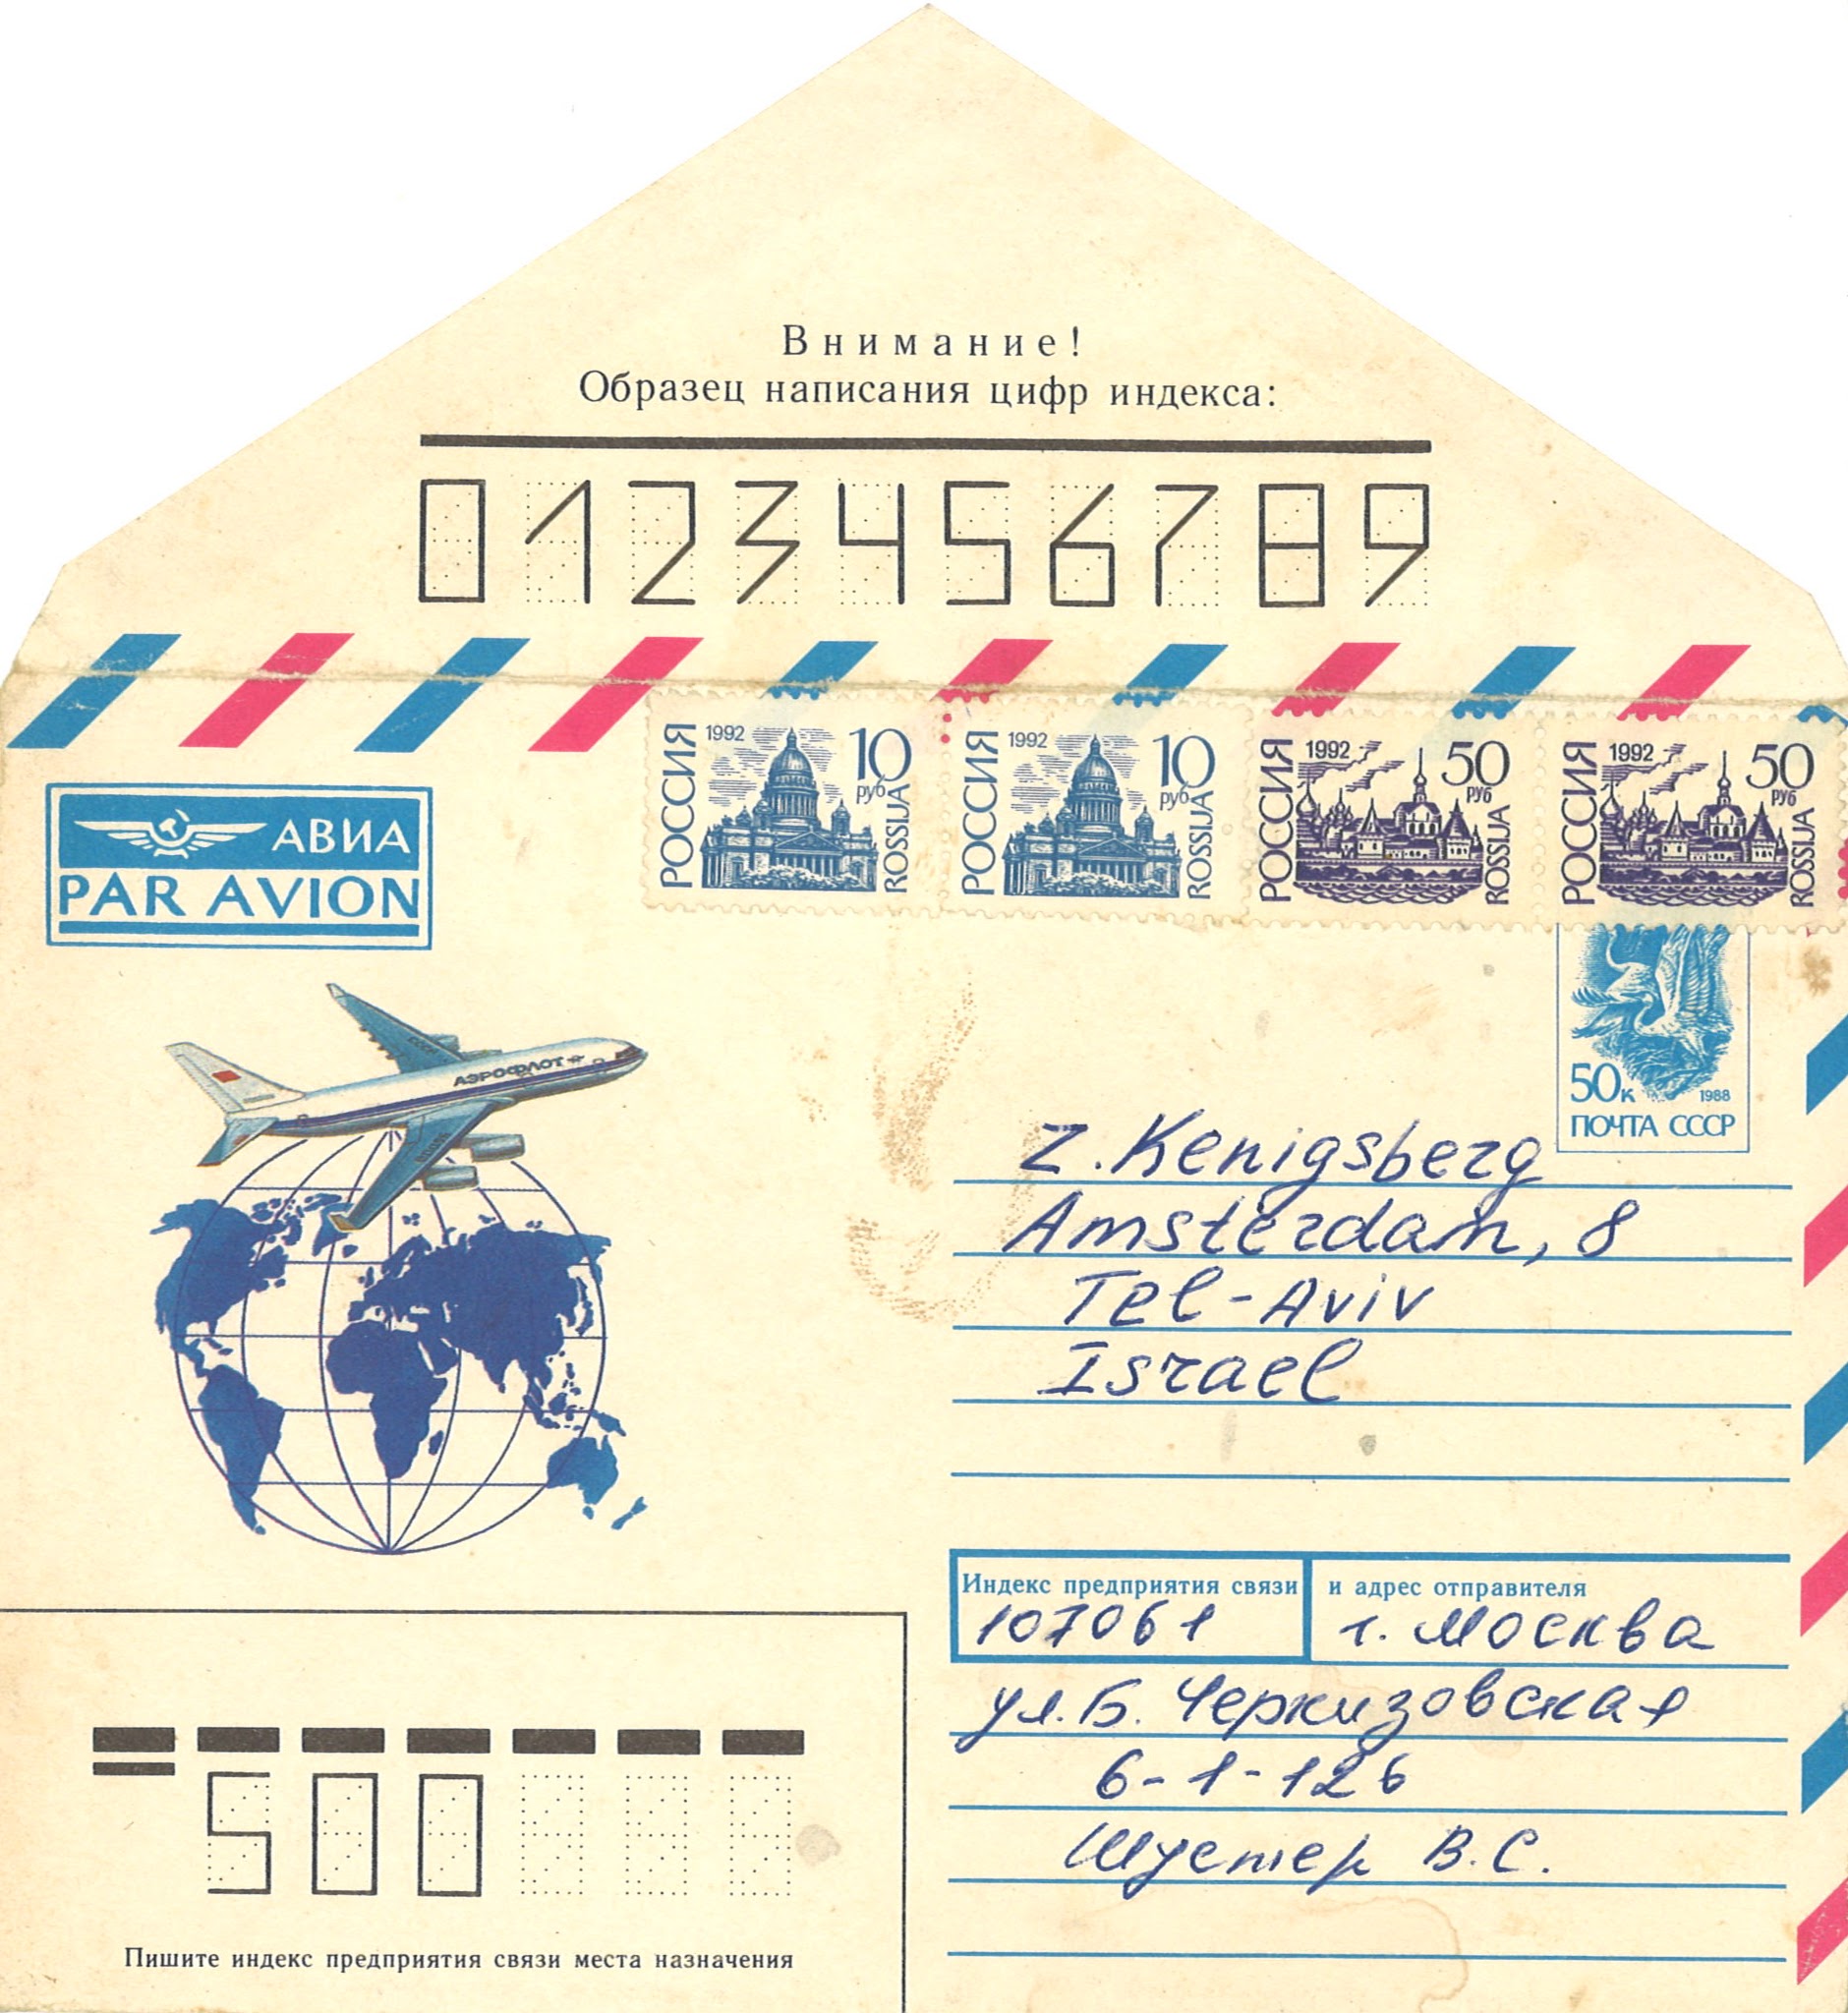 Внимание!
Образец написания цифр индекса:
0123456789
РОССИЯ 1992 10 руб ROSSIJA
РОССИЯ 1992 10 руб ROSSIJA
РОССИЯ 1992 50 РУБ ROSSIJA
РОССИЯ 1992 50 РУБ ROSSIJA
АВИА
PAR AVION
АЭРОФЛОТ
50к 1988
ПОЧТА СССР
Z. Kenigsberg
Amsterdam, 8
Tel-Aviv
Israel
Индекс предприятия связи и адрес отправителя
107061 г. Москва
ул. Б. Черкизовская
6-1-126
Шустер В.С.
500
Пишите индекс предприятия связи места назначения